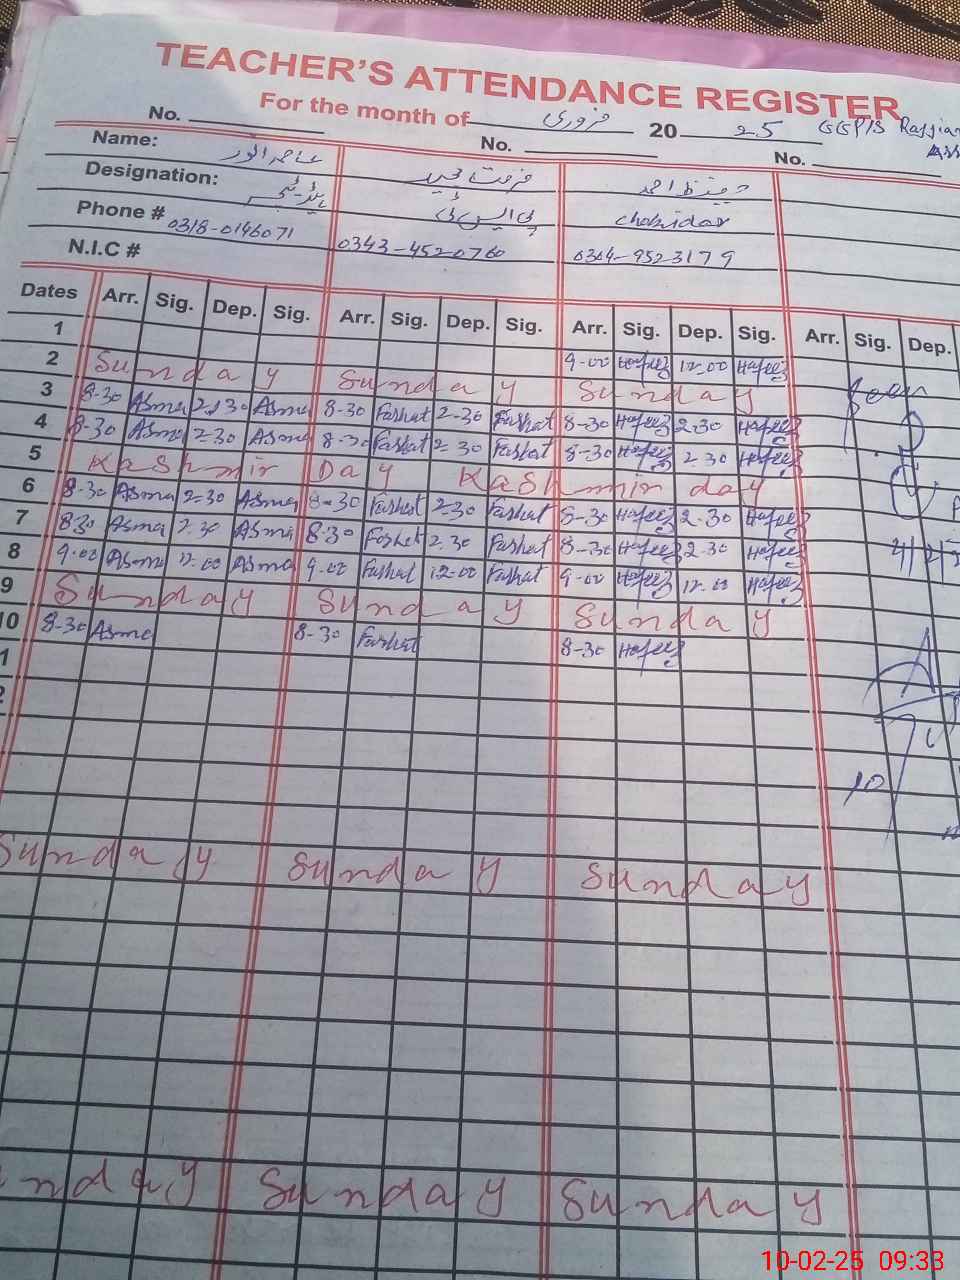 TEACHER'S ATTENDANCE REGISTER
For the month of فروری 2025 GGP/S
No. No. No.
Name: فرحت مجید حفیظ احمد
Designation: ہیڈ ٹیچر پی ایس ٹی Chokidar
Phone # 0318-0146071 0343-452-0760 0304-9523179
N.I.C #
Dates Arr. Sig. Dep. Sig. Arr. Sig. Dep. Sig. Arr. Sig. Dep. Sig. Arr. Sig. Dep.
1 9-00 Hafeez 12.00 Hafeez
2 Sunday Sunday Sunday
3 8-30 Asma 2.30 Asma 8-30 Farhat 2-30 Farhat 8-30 Hafeez 2.30 Hafeez
4 8-30 Asma 2-30 Asma 8-30 Farhat 2-30 Farhat 8-30 Hafeez 2.30 Hafeez
5 Kashmir Day Kashmir day
6 8-30 Asma 2-30 Asma 8-30 Farhat 2-30 Farhat 8-30 Hafeez 2.30 Hafeez
7 8-30 Asma 2.30 Asma 8.30 Farhat 2.30 Farhat 8-30 Hafeez 2-30 Hafeez
8 9-00 Asma 12.00 Asma 9-00 Farhat 12-00 Farhat 9-00 Hafeez 12.00 Hafeez
9 Sunday Sunday Sunday
10 8-30 Asma 8-30 Farhat 8-30 Hafeez
1
2
Sunday Sunday Sunday
nday Sunday Sunday
10-02-25 09:33